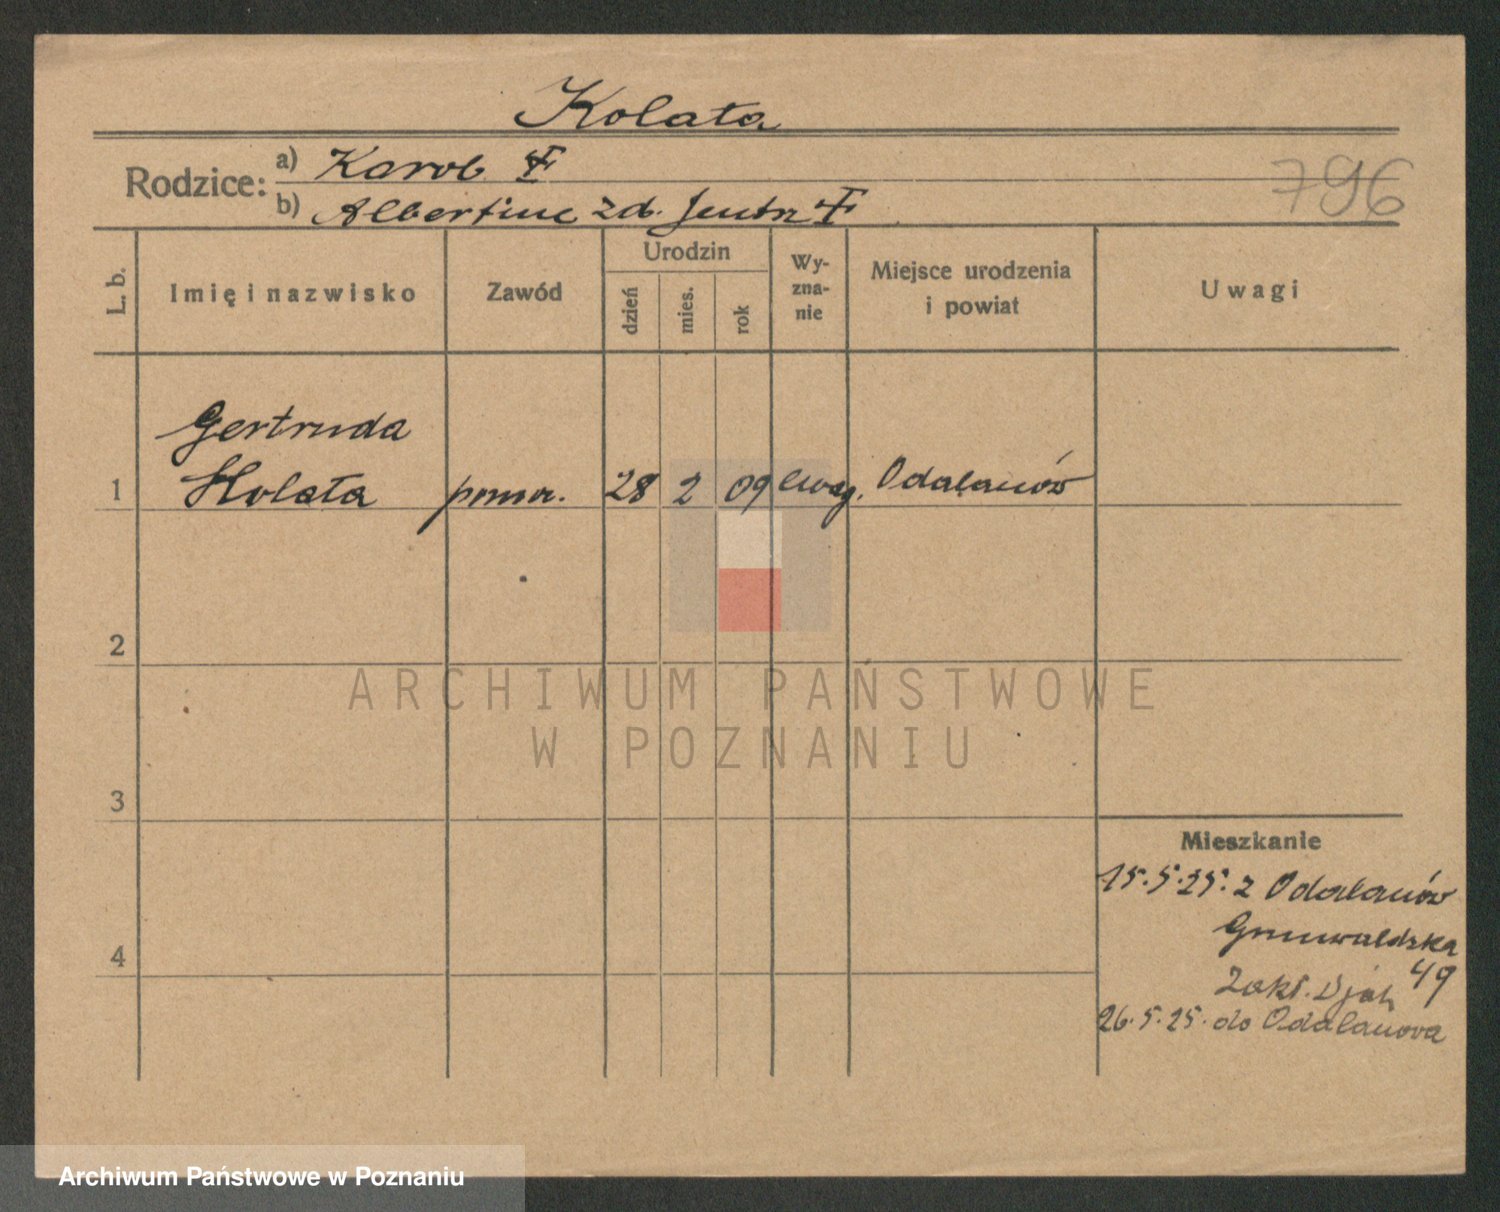 Kolata
796
Rodzice: a) Karol
b) Albertine zd.
L. b.
Imię i nazwisko
Zawód
Urodzin
dzień
mies.
rok
Wy-
zna-
nie
Miejsce urodzenia
i powiat
Uwagi
Gertruda
1 Kolata 28 2 09 ewag. Odalanów
2
3
4
Mieszkanie
15.5.25. z Odalanów
Grunwaldzka
49
Zakł. Djak
26.5.25. do Odalanowa
ARCHIWUM PAŃSTWOWE
W POZNANIU
Archiwum Państwowe w Poznaniu